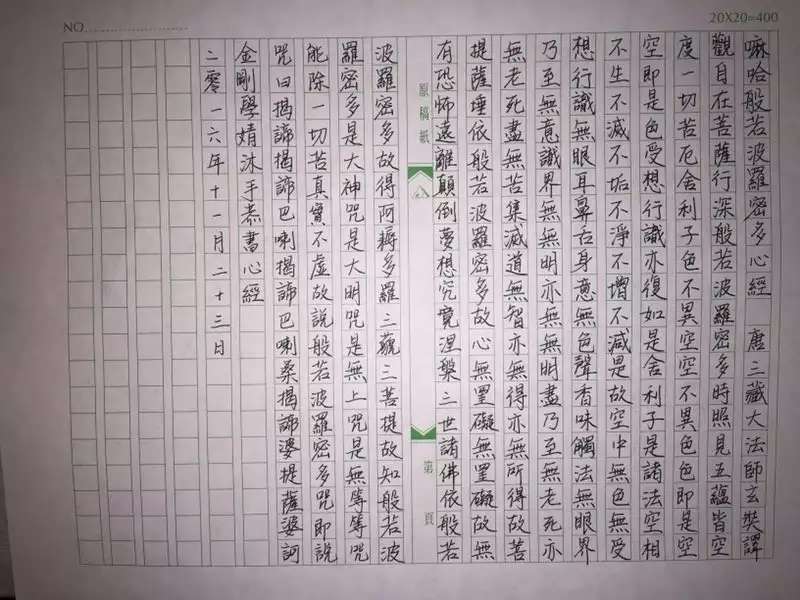 NO.
20X20=400
嘛哈般若波羅密多心經 唐三藏大法師玄奘譯
觀自在菩薩行深般若波羅密多時照見五蘊皆空
度一切苦厄舍利子色不異空空不異色色即是空
空即是色受想行識亦復如是舍利子是諸法空相
不生不滅不垢不淨不增不減是故空中無色無受
想行識無眼耳鼻舌身意無色聲香味觸法無眼界
乃至無意識界無無明亦無無明盡乃至無老死亦
無老死盡無苦集滅道無智亦無得亦無所得故菩
提薩埵依般若波羅密多故心無罣礙無罣礙故無
有恐怖遠離顛倒夢想究竟涅槃三世諸佛依般若
原稿紙
第 頁
波羅密多故得阿耨多羅三藐三菩提故知般若波
羅密多是大神咒是大明咒是無上咒是無等等咒
能除一切苦真實不虛故說般若波羅密多咒即說
咒曰揭諦揭諦巴喇揭諦巴喇桑揭諦婆提薩婆訶
金剛學婧沐手恭書心經
二零一六年十一月二十三日